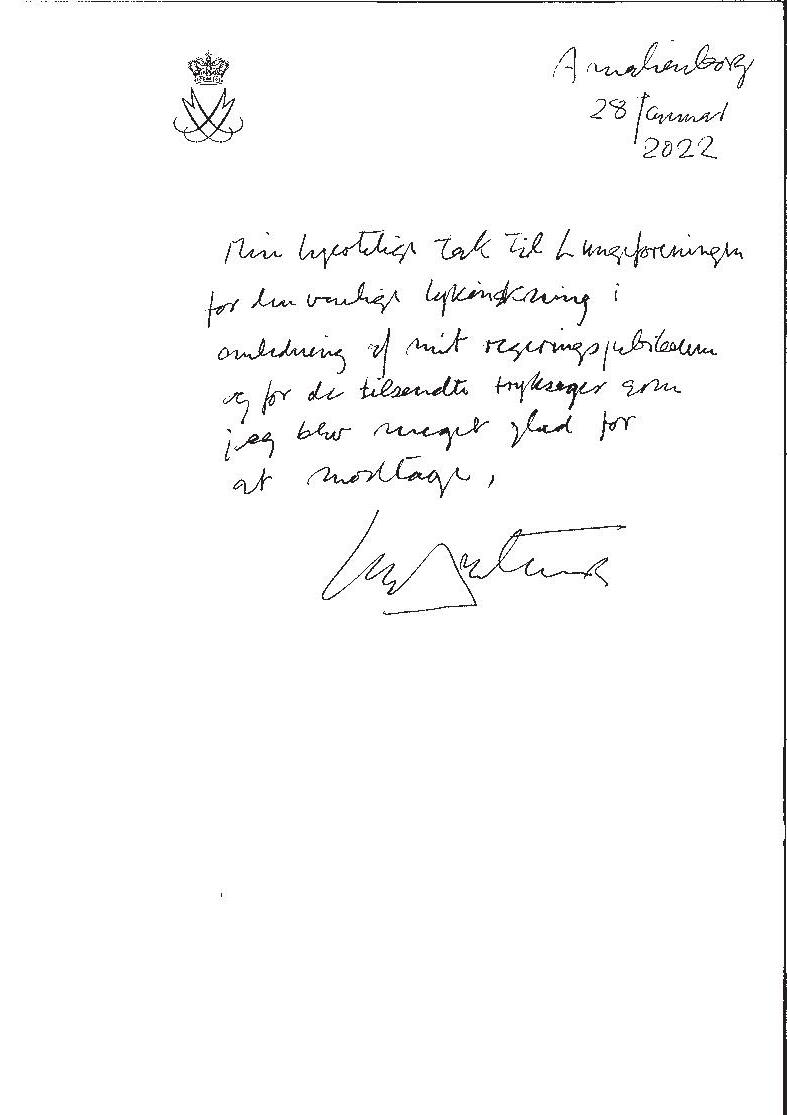 Amalienborg
28 Januar
2022
Min hjertelige tak til Lungeforeningen
for den venlige lykønskning i
anledning af mit regeringsjubilæum
og for de tilsendte tryksager som
jeg blev meget glad for
at modtage,